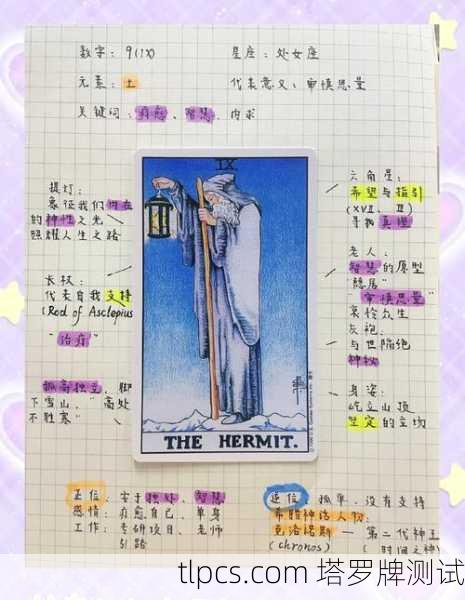 数字：9(IX)
星座：处女座
元素：土
代表意义：审慎思量
关键词：疗愈、智慧、内求
提灯：
象征我们内在
的神性之光
照耀人生之路
长杖：
代表自我支持
(Rod of Asclepius
"治疗"
孤高独立，脚
下雪山，"高处
不胜寒"
IX
THE HERMIT.
六角星：
希望与指引
(XVII、II)
寻拘真理
老人：
智慧的原型
"隐居"
"审慎思量"
哀怜众生
灰袍：
与世隔绝
神秘
身姿：
屹立山顶
坚定的立场
正位：安于独处、智慧
感情：疗愈自己、单身
工作：专研项目、老师
引路
逆位：孤单、没有支持
希腊神话人物：
克洛诺斯—第二代神王
(chronos)（时间之神）
tlpcs.com 塔罗牌测试